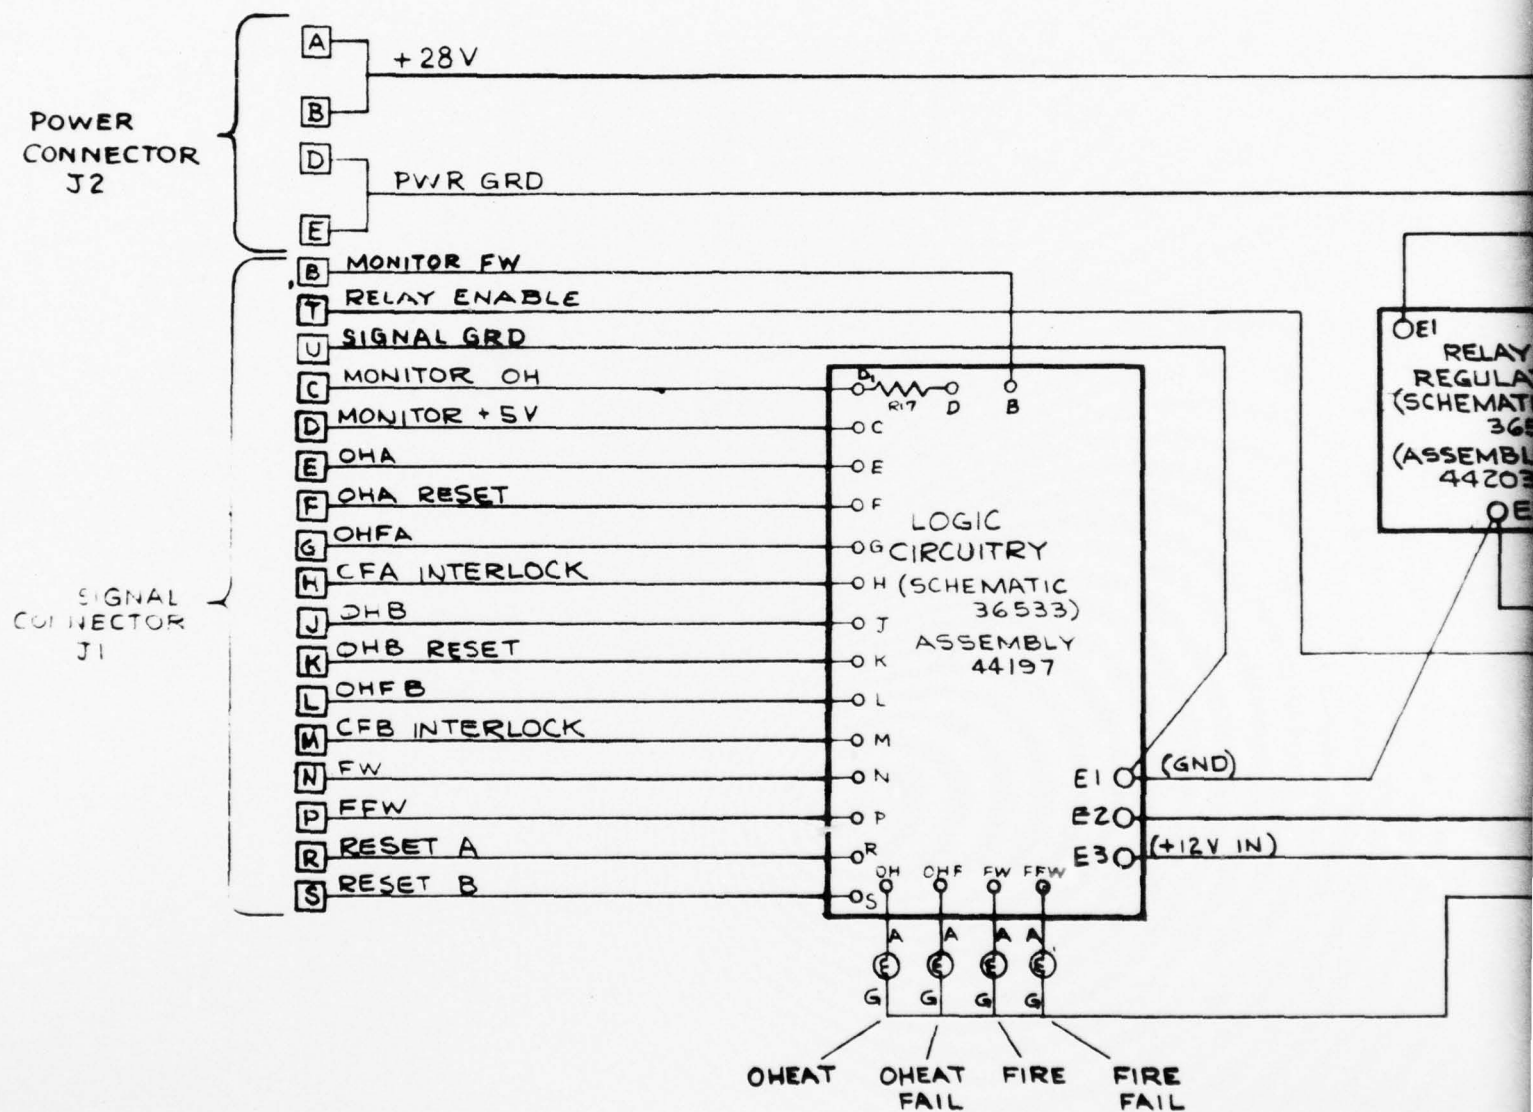 A
+28V
B
POWER
CONNECTOR
J2
D
PWR GRD
E
B MONITOR FW
T RELAY ENABLE
U SIGNAL GRD
C MONITOR OH
D MONITOR +5V
E OHA
F OHA RESET
G OHFA
H CFA INTERLOCK
J OHB
K OHB RESET
L OHFB
M CFB INTERLOCK
N FW
P FFW
R RESET A
S RESET B
SIGNAL
CONNECTOR
J1
R17 D B
C
E
F
G
H
J
K
L
M
N
P
R
S
LOGIC
CIRCUITRY
(SCHEMATIC
36533)
ASSEMBLY
44197
E1 (GND)
E2
E3 (+12V IN)
OH OHF FW FFW
A A A A
E E E E
G G G G
OHEAT
OHEAT
FAIL
FIRE
FIRE
FAIL
E1
RELAY
(SCHEMATI
(ASSEMBL
44203
E